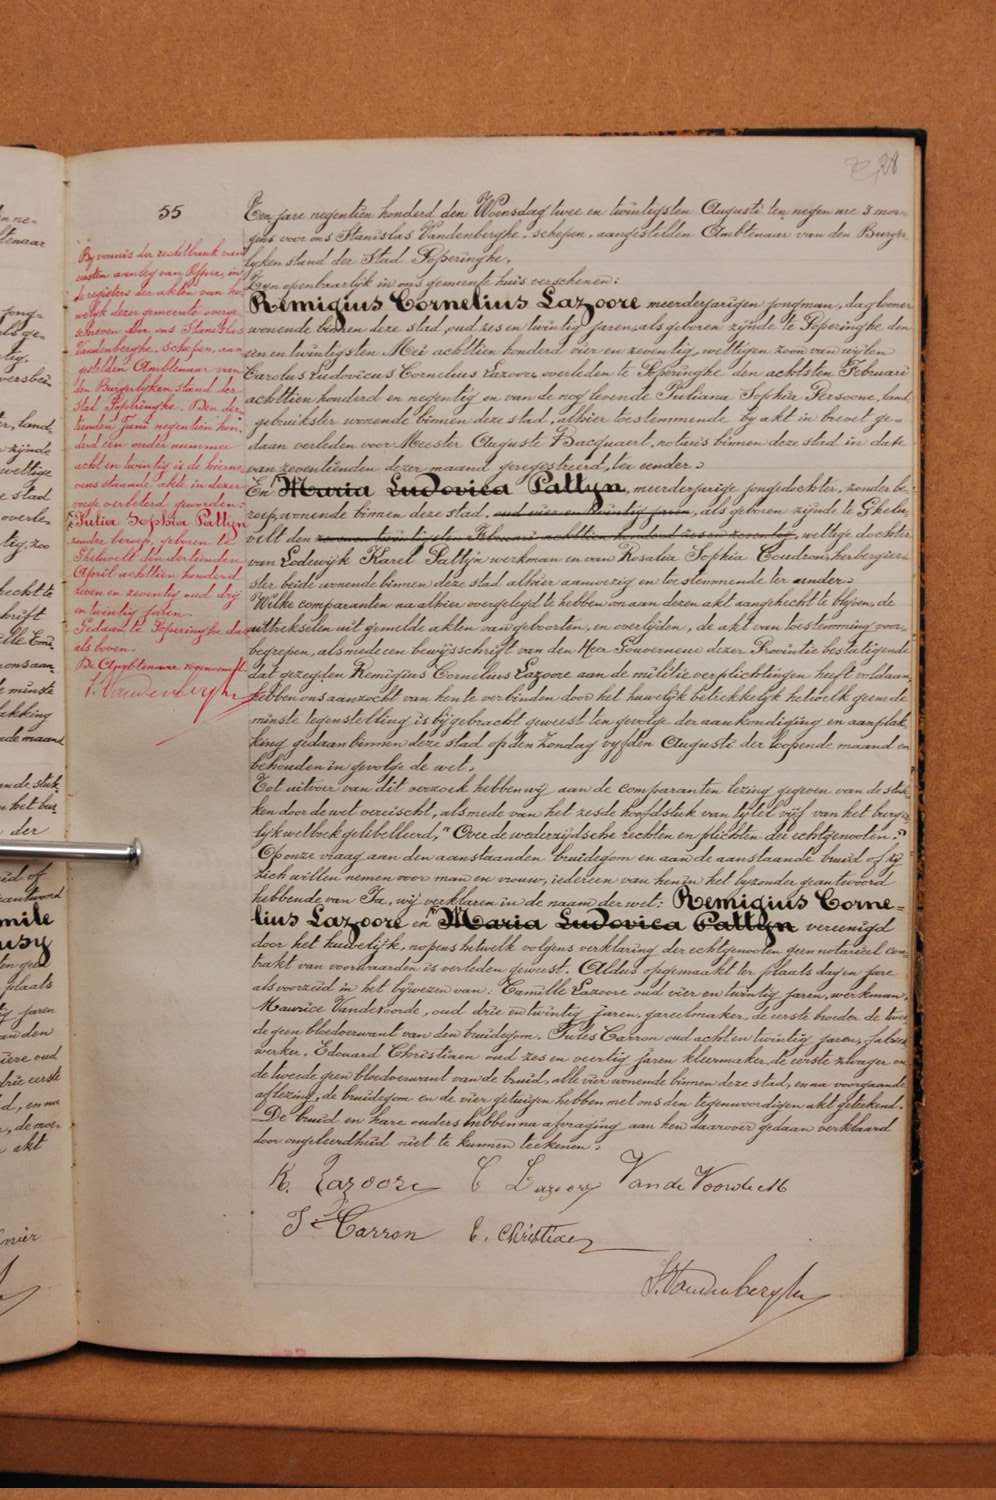 28
55
Een jare negentien honderd den Woensdag twee en twintigsten Augusti ten negen ure 's mor-
gens voor ons Stanislas Vandenberghe, schepen, aangestelden Ambtenaar van den Burger-
lyken stand der Stad Poperinghe,
Zyn openbaarlijk in ons gemeente huis verschenen:
Remigius Cornelius Lazoore meerderjarigen jongman, daglooner
wonende binnen deze stad, oud zes en twintig jaren, als geboren zijnde te Poperinghe den
een en twintigsten Mei achttien honderd vier en zeventig, wettigen zoon van wijlen
Carolus Ludovicus Cornelius Lazoore, overleden te Poperinghe den achtsten Februari
achttien honderd en negentig en van de nog levende Juliana Sophia Persoone, land
gebruikster wonende binnen deze stad, alhier toestemmende by akt in brevet ge-
daan verleden voor Meester Auguste Bacquaert, notaris binnen deze stad in date
van zeventienden dezer maand geregistreerd, ter eender.
En Maria Ludovica Pattyn, meerderjarige jongedochter, zonder be-
roep, wonende binnen deze stad, oud vier en twintig jaren, als geboren zijnde te Ghelu-
velt den zeven en twintigsten Februari achttien honderd zes en zeventig, wettige dochter
van Lodewijk Karel Pattijn werkman en van Rosalia Sophia Coudron, herbergier-
ster beide wonende binnen deze stad alhier aanwezig en toestemmende ter ander.
Wilke comparanten na alhier overgelegd te hebben om aan dezen akt aangehecht te blijven, de
uittrekselen uit gemelde akten van geboorten, en overlijden, de akt van toestemming voor-
begrepen, alsmede een bewijsschrift van den Heer Gouverneur dezer Provintie bestatigende
dat gezegden Remigius Cornelius Lazoore aan de militie verplichtingen heeft voldaan,
hebben ons aanzocht van hen te verbinden door het huwelijk betrekkelijk hetwelk geene de
minste tegenstelling is bijgebracht geweest ten gevolge der aankondiging en aanplak-
king gedaan binnen deze stad op den Zondag vyfden Augusti der loopende maand en
behouden in gevolge de wet.
Tot uitvoer van dit verzoek hebben wij aan de comparanten lezing gegeven van de stuk-
ken door de wet vereischt, alsmede van het zesde hoofdstuk van tytel vijf van het burger-
lijk wetboek gelibelleerd, "Over de wederzijdsche rechten en plichten der echtgenooten."
Op onze vraag aan den aanstaanden bruidegom en aan de aanstaande bruid of zij
zich willen nemen voor man en vrouw, iedereen van hen in het byzonder geantwoord
hebbende van Ja, wij verklaren in de naam der wet: Remigius Corne-
lius Lazoore en Maria Ludovica Pattyn vereenigd
door het huwelijk, nopens hetwelk volgens verklaring der echtgenooten geen notarieel con-
trakt van voorwaarden is verleden geweest. Aldus opgemaakt ter plaats dag en jare
als voorzeid in het bijwezen van: Camille Lazoore oud vier en twintig jaren, werkman,
Maurice Vandevoorde, oud drie en twintig jaren, gareelmaker, de eerste broeder de twee-
de geen bloedverwant van den bruidegom. Jules Carron oud acht en twintig jaren, fabriek
werker, Edouard Christiaen oud zes en veertig jaren kleermaker, de eerste zwager en
de tweede geen bloedverwant van de bruid, alle vier wonende binnen deze stad, en na voorgaande
aflezing, de bruidegom en de vier getuigen hebben met ons den tegenwoordigen akt geteekend.
De bruid en hare ouders hebben na afvraging aan hen daarover gedaan verklaard
door ongeleerdheid niet te kunnen teekenen.
R. Lazoore C Lazoore Van de Voorde M
J Carron E. Christiaen
S. Vandenberghe
By vonnis der rechtbank van
eersten aanleg van Yper, in
de registers der akten van hu-
welyk dezer gemeente overge-
schreven door ons Stanislas
Vandenberghe, schepen, aan
gestelden Ambtenaar van
den Burgerlyken stand der
stad Poperinghe. Den der-
tienden Juni negentien hon-
derd een onder nummer
acht en twintig is de hierne-
vens staande akte in dezer
voege verbeterd geworden:
Julia Sophia Pattyn
zonder beroep, geboren te
Gheluvelt den dertienden
April achttien honderd
zeven en zeventig oud drij
en twintig jaren.
Gedaan te Poperinghe dag
als boven.
De Ambtenaar voornoemd
S. Vandenberghe